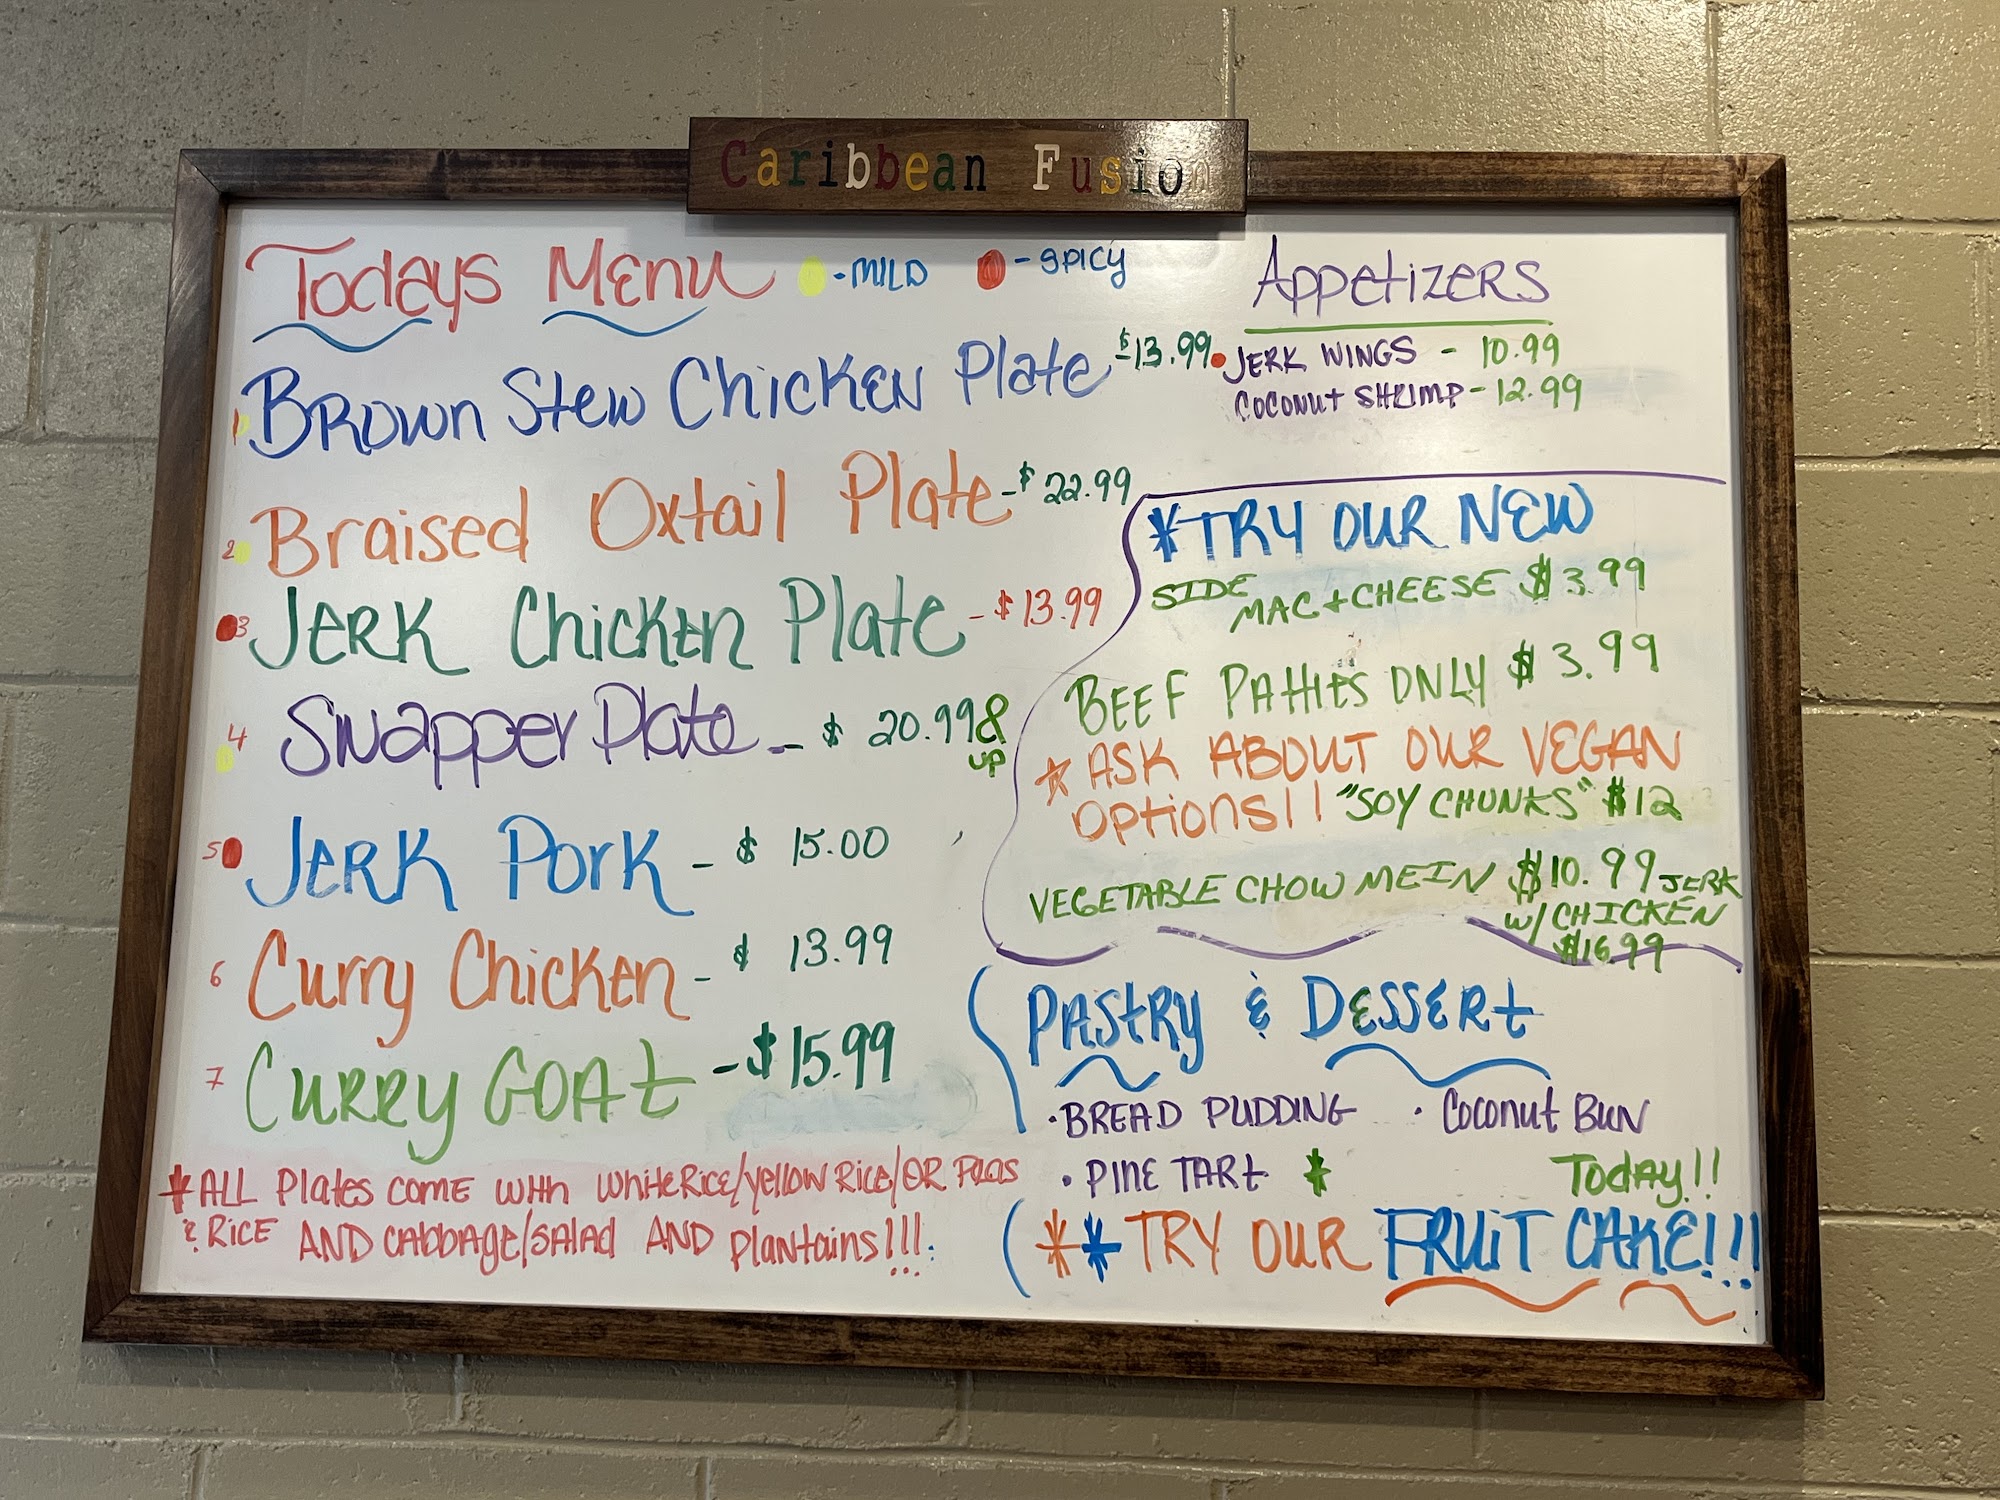 Caribbean Fusion
Todays Menu - MILD - SPICY
1 Brown Stew Chicken Plate - $13.99
2 Braised Oxtail Plate - $22.99
3 Jerk Chicken Plate - $13.99
4 Snapper Plate - $ 20.99 & UP
5 Jerk Pork - $ 15.00
6 Curry Chicken - $ 13.99
7 Curry Goat - $15.99
*ALL Plates come with White Rice/Yellow Rice/OR Peas
& Rice AND Cabbage/Salad AND Plantains!!!
Appetizers
JERK WINGS - 10.99
COCONUT SHRIMP - 12.99
*TRY OUR NEW
SIDE MAC + CHEESE $3.99
BEEF PATTIES ONLY $3.99
* ASK ABOUT OUR VEGAN
OPTIONS!! "SOY CHUNKS" $12
VEGETABLE CHOW MEIN $10.99 JERK
W/CHICKEN
$16.99
PASTRY & DESSERT
• BREAD PUDDING • Coconut BUN
• PINE TART * TODAY!!
** TRY OUR FRUIT CAKE!!!